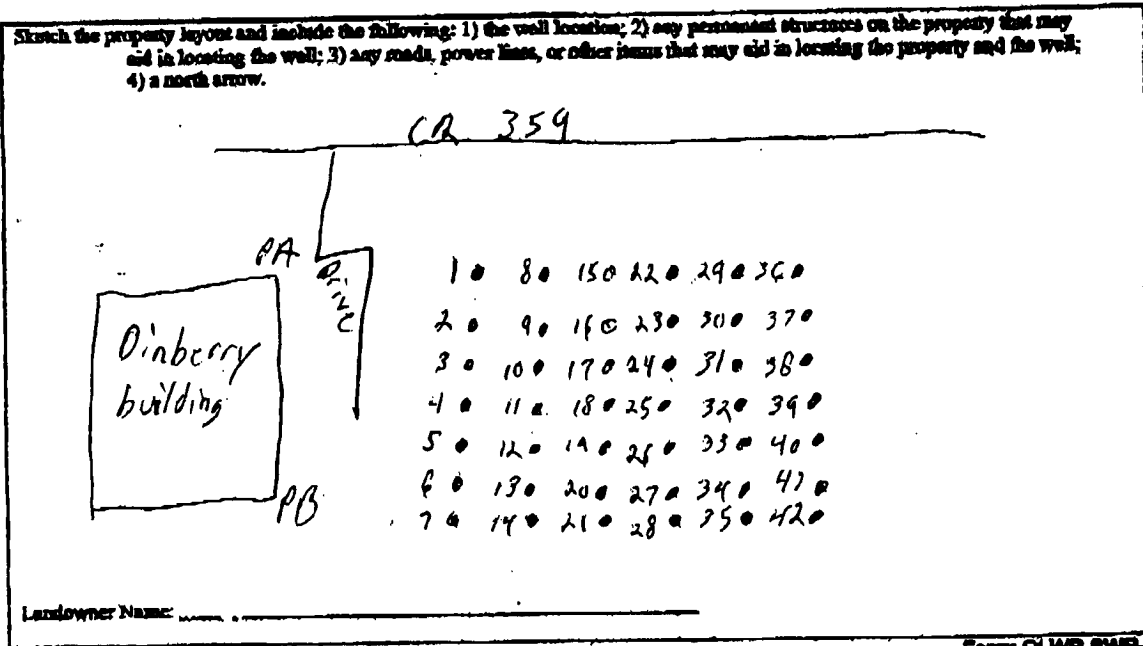 Sketch the property layout and include the following: 1) the well location; 2) any permanent structures on the property that may
aid in locating the well; 3) any roads, power lines, or other items that may aid in locating the property and the well;
4) a north arrow.
CR 359
PA
Drive
Dinberry
building
PB
1 8 15 22 29 36
2 9 16 23 30 37
3 10 17 24 31 38
4 11 18 25 32 39
5 12 19 26 33 40
6 13 20 27 34 41
7 14 21 28 35 42
Landowner Name: